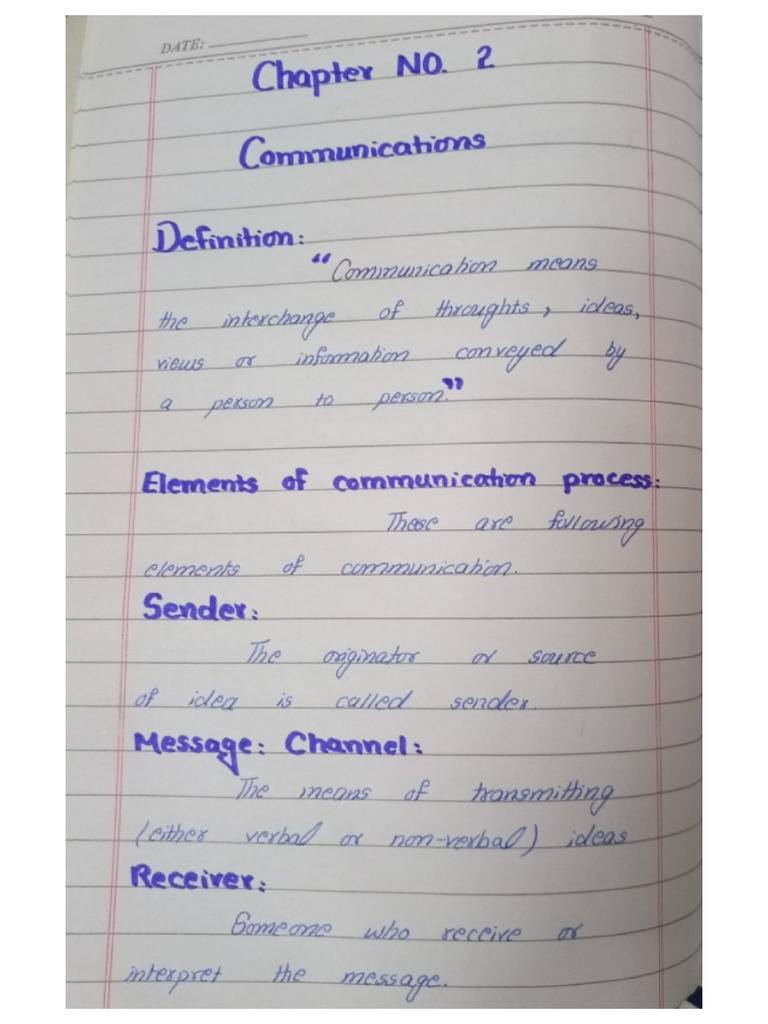 DATE:
Chapter NO. 2
Communications
Definition:
"Communication means
the interchange of throughts, ideas,
views or information conveyed by
a person to person."
Elements of communication process:
These are following
elements of communication.
Sender:
The originator or source
of idea is called sender.
Message: Channel:
The means of transmitting
(either verbal or non-verbal) ideas
Receiver:
Someone who receive or
interpret the message.